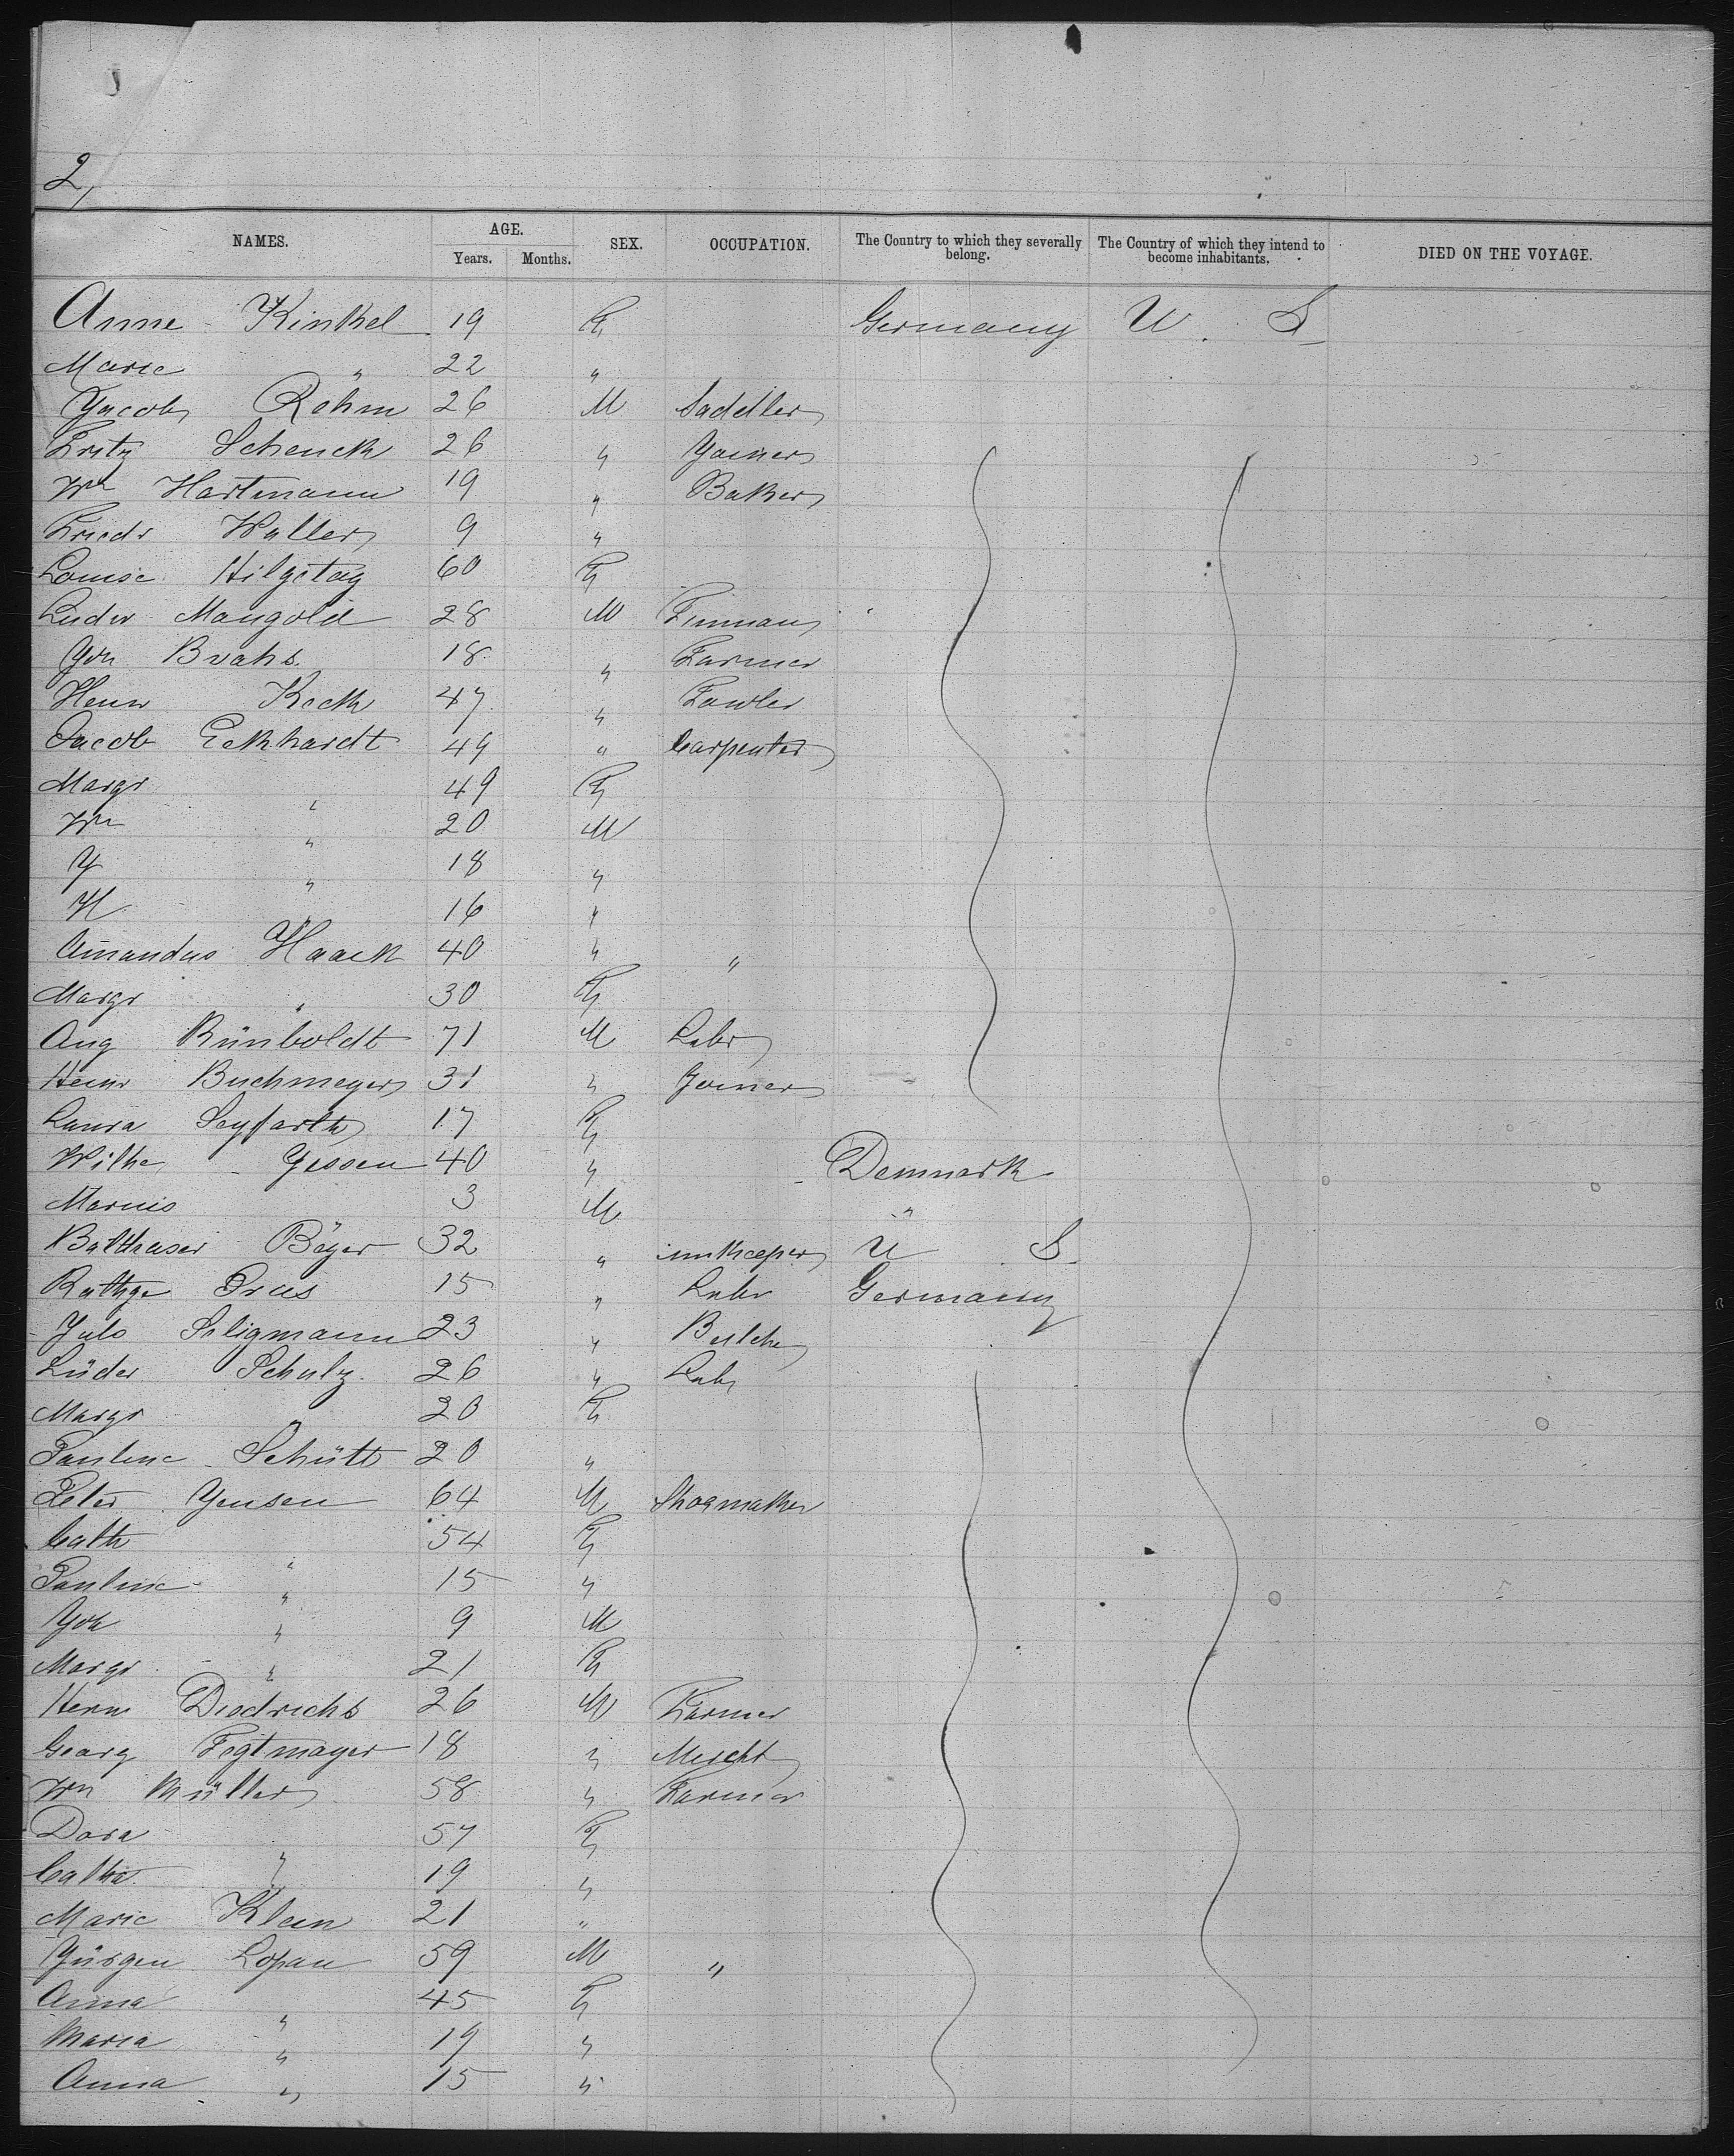 2,
NAMES. AGE. Years. Months. SEX. OCCUPATION. The Country to which they severally belong. The Country of which they intend to become inhabitants. DIED ON THE VOYAGE.
Anne Kinkel 19 F Germany U. S.
Marie " 22 "
Yacob Rehm 26 M Saddler
Fritz Schenck 26 " Yoiner
Wm Hartmann 19 " Baker
Friedr Waller 9 "
Louise Hilgetag 60 F
Ludw Mangold 28 M
Yoh Brahs 18 " Farmer
Heinr Keck 47 " Fowler
Jacob Eckhardt 49 " Carpenter
Margr " 49 F
Wm " 20 M
Y " 18 "
H " 16 "
Amandus Haack 40 " "
Margr " 30 F
Aug Rünboldt 71 M Labr
Heinr Buchmeyer 31 " Joiner
Laura Seyfarth 17 F
Wilhe Yessen 40 " Denmark
3 M "
Balthasar Böger 32 " innkeeper U S.
Rathge 15 " Labr Germany
Yuls Seligmann 23 " Butcher
Lüder Schulz 26 " Labr
Margr " 20 F
Pauline Schütt 20 "
Peter Yensen 64 M Shoemaker
Cath " 54 F
Pauline " 15 "
Yoh " 9 M
Margr " 21 F
Herm Diedrichs 26 M Farmer
Georg Fegtmayer 18 " Mercht
Wm Müller 58 " Farmer
Dora 57 F
Catha " 19 "
Marie Klein 21 "
Yürgen Lopau 59 M "
Anna " 45 F
Maria " 19 "
Anna " 15 "